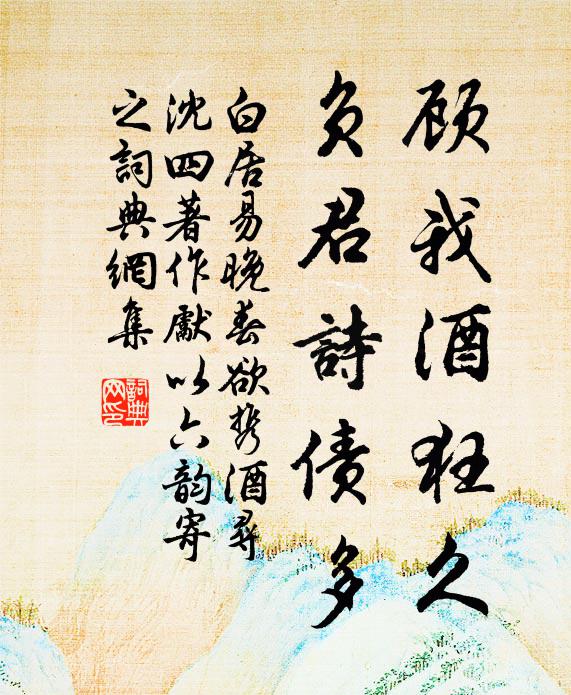 顾我酒狂久
负君詩债多
白居易晚春欲携酒尋
沈四著作獻以六韵寄
之詞典網集
詞典
网印